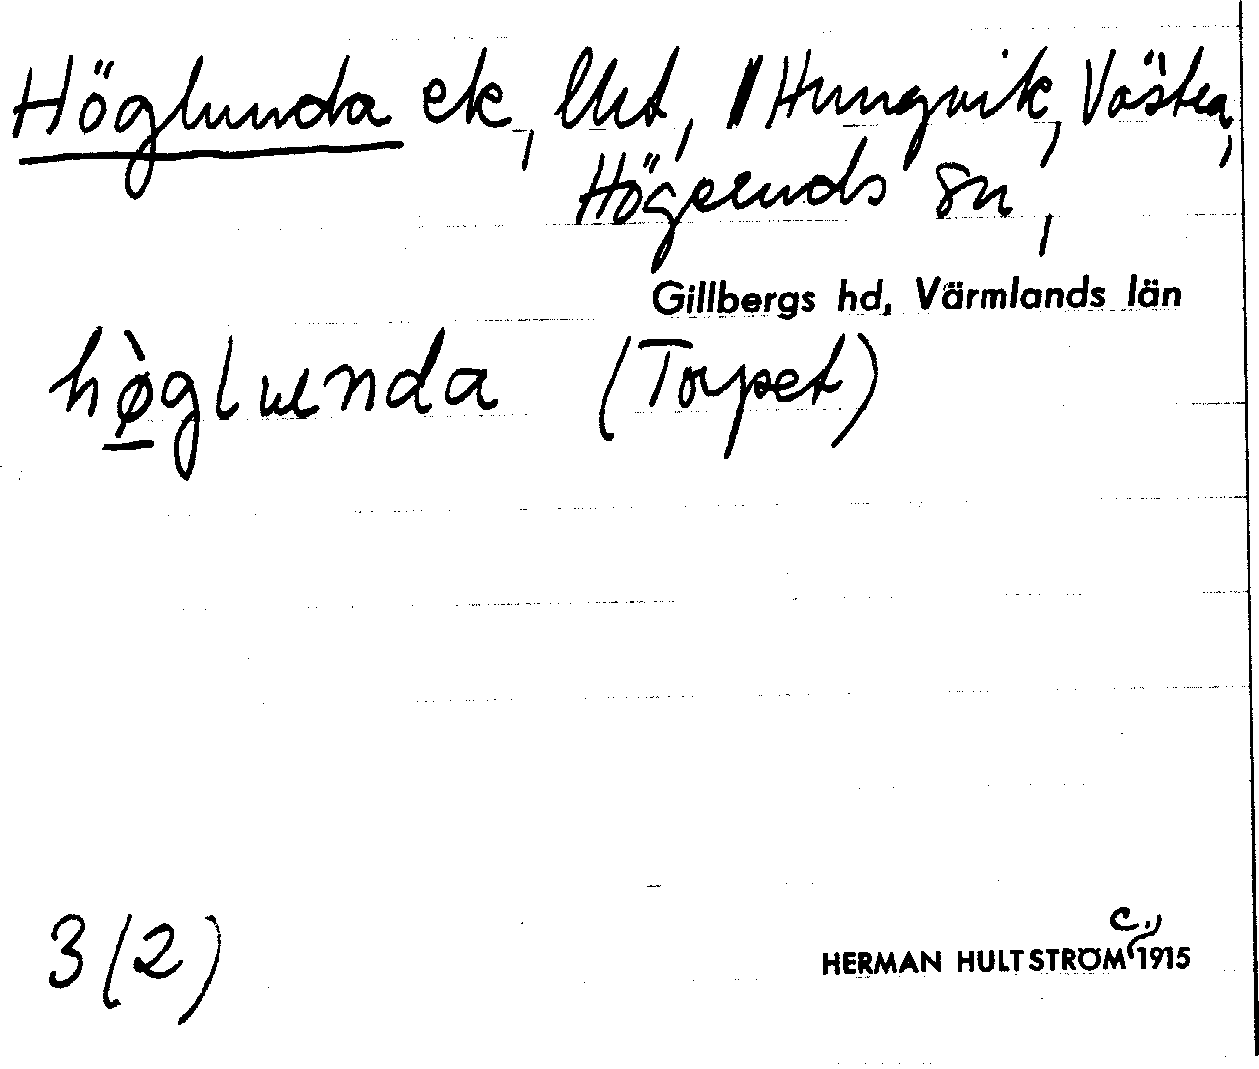 Höglunda ek, lht, Hungvik, Västra,
Högeruds sn,
Gillbergs hd, Värmlands län
hø̀glunda (Torpet)
3(2)
c.
HERMAN HULTSTRÖM 1915